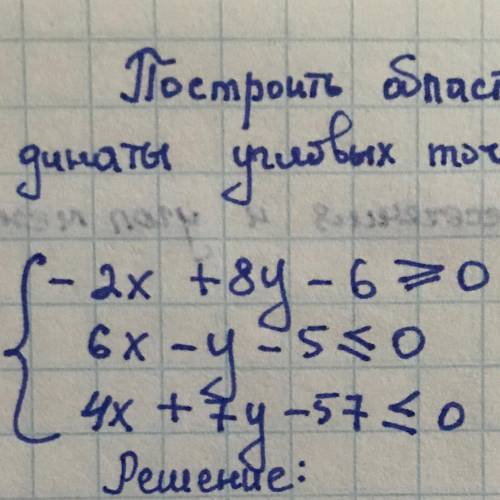 Построить област
динаты угловых точ
- 2x + 8y - 6 ⩾ 0
6x - y - 5 ≤ 0
4x + 7y - 57 ≤ 0
Решение: